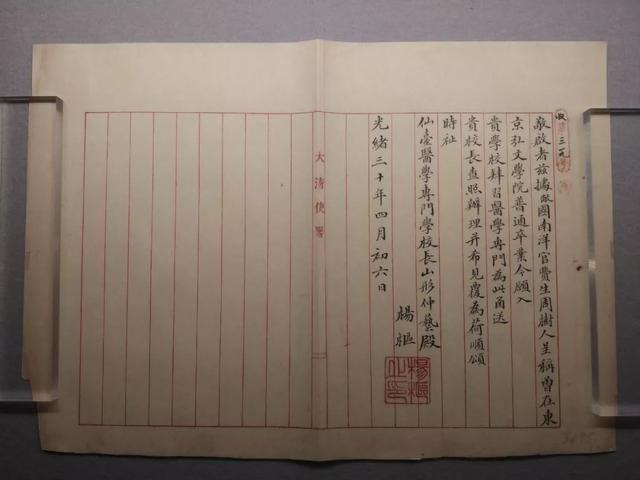 收 三一九
敬啟者茲據敝國南洋官費生周樹人呈稱曾在東
京弘文學院普通卒業今願入
貴學校肄習醫學專門為此函送
貴校長查照辦理并布見覆為荷順頌
時祉
仙臺醫學專門學校長山形仲藝殿
楊樞
楊樞之印
光緒三十年四月初六日
大清使署